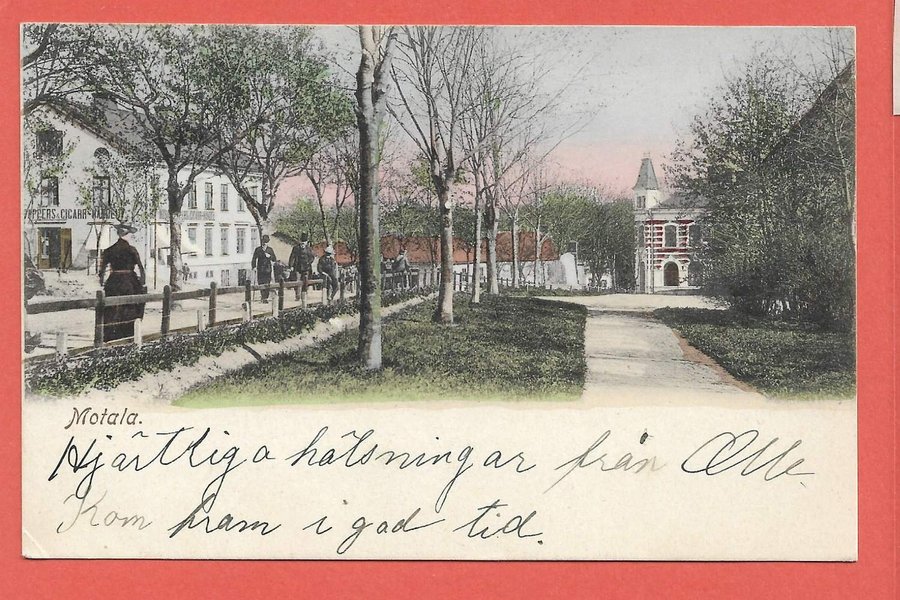 & CIGARR
Motala.
Hjärtliga hälsningar från Olle.
Kom fram i god tid.